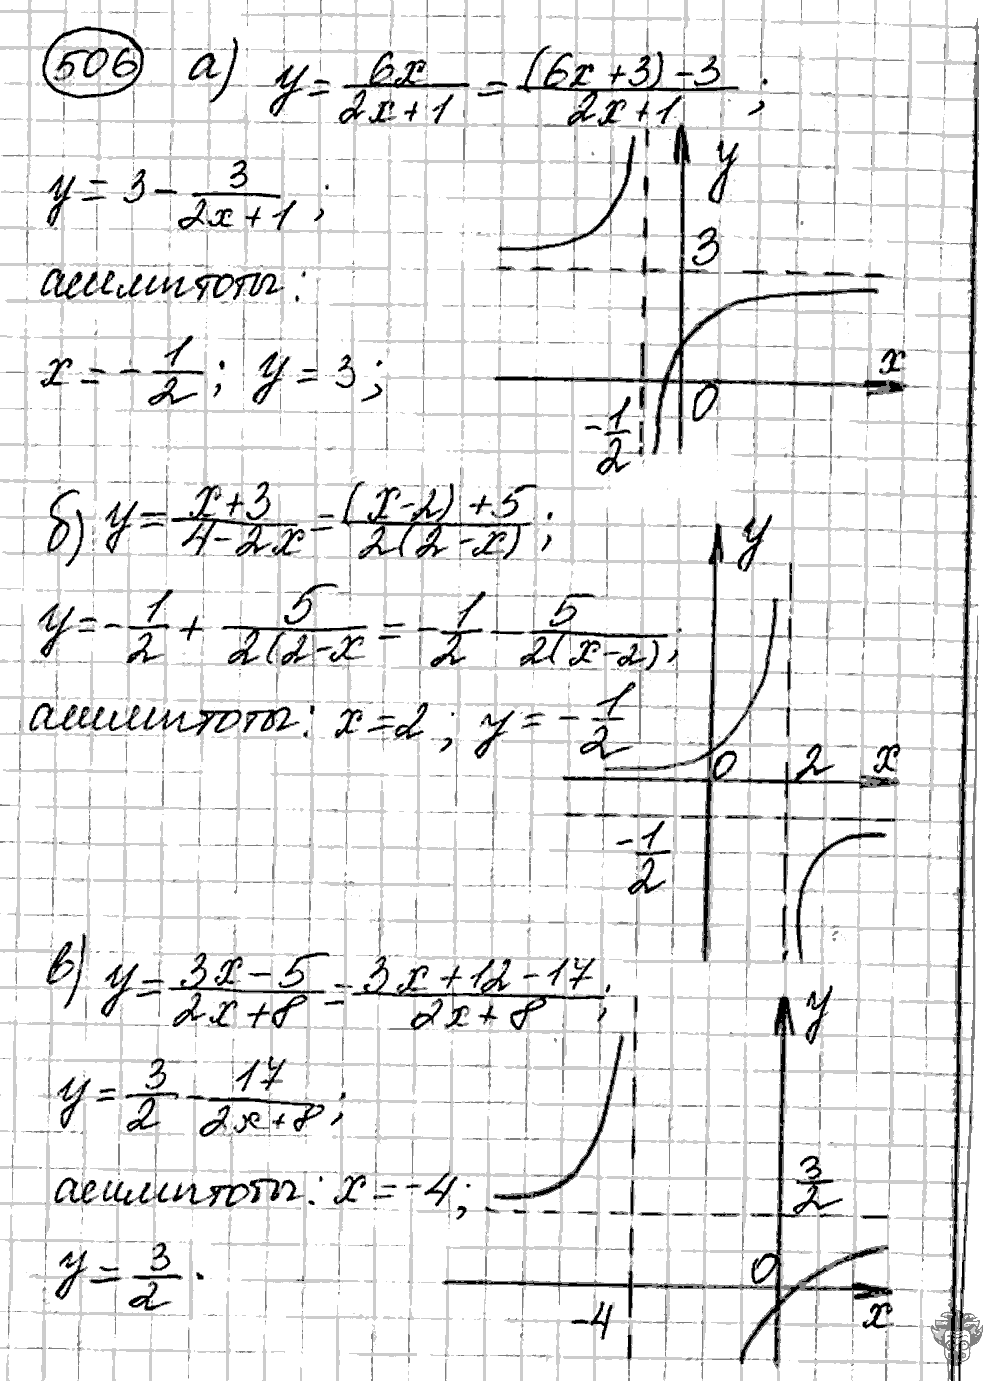 506 а) y = 6x/(2x+1) = ((6x+3)-3)/(2x+1);
y
y = 3 - 3/(2x+1);
3
асимптоты:
x = -1/2; y = 3;
x
0
-1/2
б) y = (x+3)/(4-2x) = ((x-2)+5)/(2(2-x));
y
y = -1/2 + 5/(2(2-x) = -1/2 - 5/(2(x-2));
асимптоты: x=2; y = -1/2
0 2 x
-1/2
в) y = (3x-5)/(2x+8) = (3x+12-17)/(2x+8);
y
y = 3/2 - 17/(2x+8);
асимптоты: x=-4;
3/2
y = 3/2.
0
-4
x